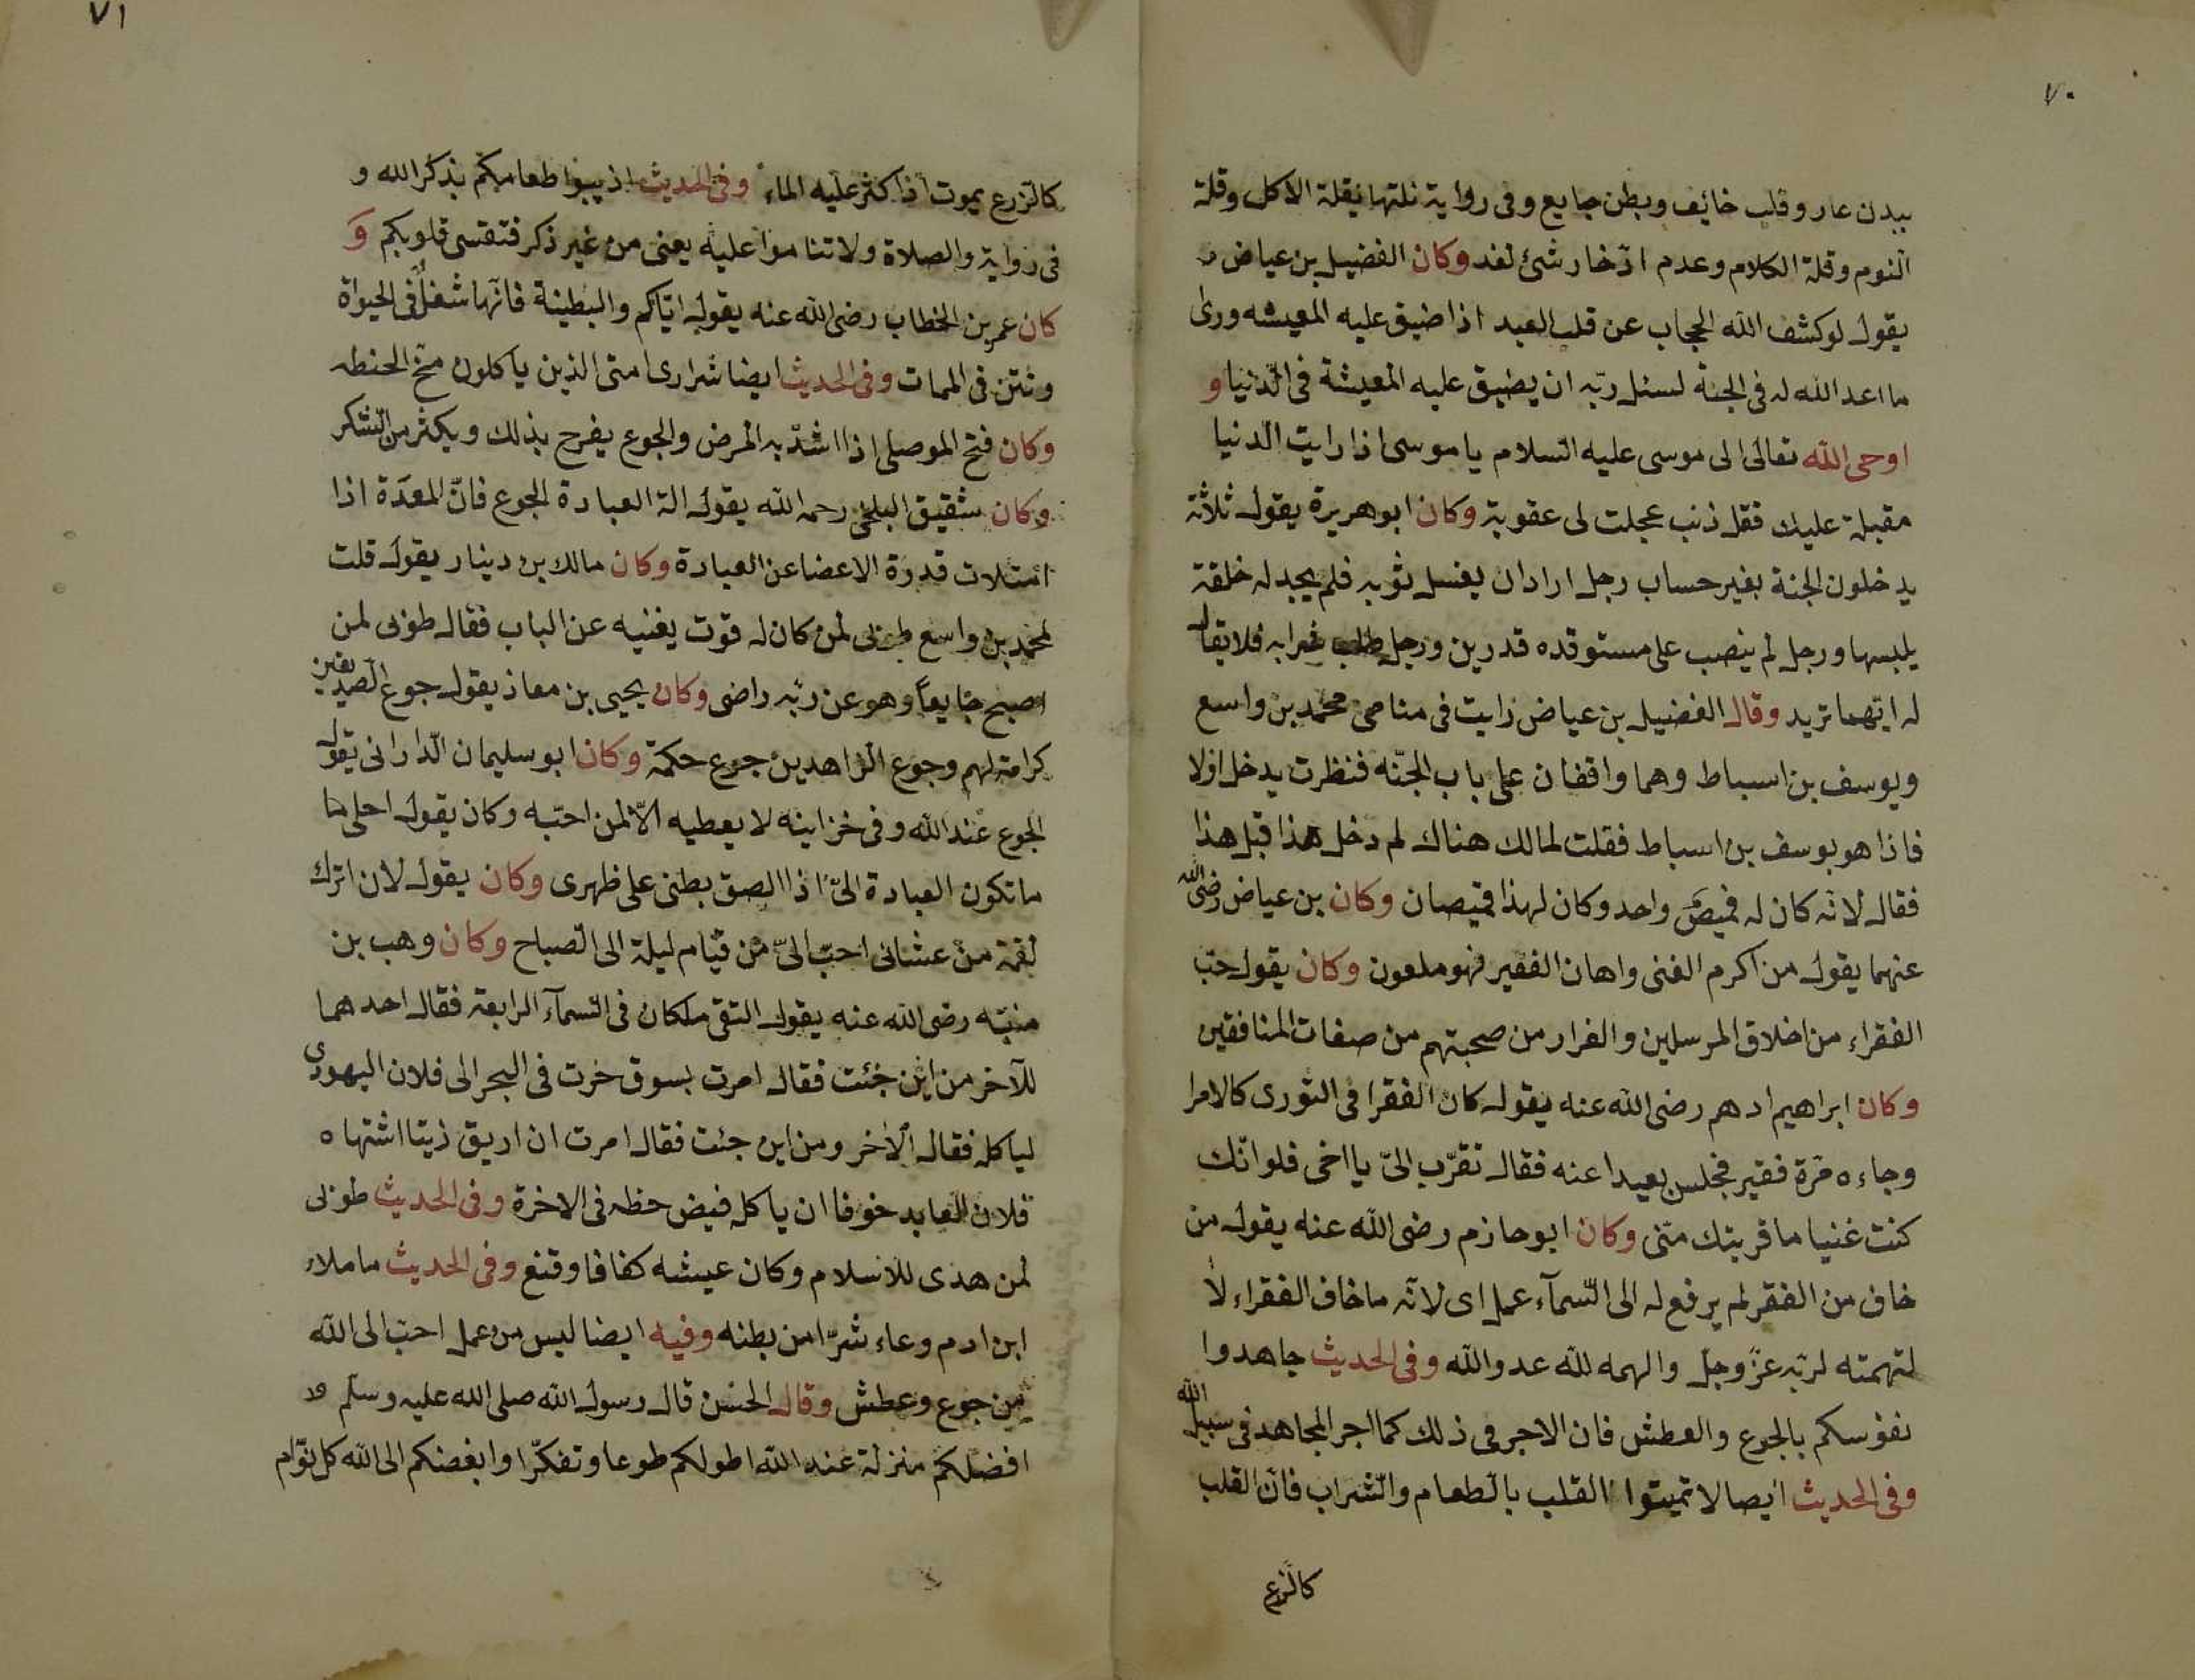 ٧٠
ببدن عار وقلب خائف وبطن جايع وفى رواية نلتها بقلة الاكل وقلة
النوم وقلة الكلام وعدم اذخار شئ لغد وكان الفضيل بن عياض
يقول لوكشف الله الحجاب عن قلب العبد اذا ضيق عليه المعيشه وراى
ما اعد الله له فى الجنة لسئل ربّه ان يضيق عليه المعيشة فى الدّنيا و
اوحى الله تعالى الى موسى عليه السلام يا موسى اذا رايت الدنيا
مقبلة عليك فقل ذنب عجلت لى عقوبته وكان ابو هريرة يقول ثلاثة
يدخلون الجنة بغير حساب رجل اراد ان يغسل ثوبه فلم يجد له خلقة
يلبسها ورجل لم ينصب على مستوقده قدرين ورجل طلب شرابه فلا يقال
له ايّهما تريد وقال الفضيل بن عياض رايت فى منامى محمد بن واسع
ويوسف بن اسباط وهما واقفان على باب الجنّه فنظرت يدخل اولا
فاذا هو يوسف بن اسباط فقلت لمالك هناك لم دخل هذا قبل هذا
فقال لانّه كان له قميص واحد وكان لهذا قميصان وكان بن عياض رضى الله
عنهما يقول من اكرم الغنى واهان الفقير فهو ملعون وكان يقول حبّ
الفقراء من اخلاق المرسلين والفرار من صحبتهم من صفات المنافقين
وكان ابراهيم ادهم رضى الله عنه يقول كان الفقرا فى الثورى كالامرا
وجاءه مرة فقير فجلس بعيدا عنه فقال تقرّب الىّ يا اخى فلو انّك
كنت غنيا ما قربتك منّى وكان ابو حازم رضى الله عنه يقول من
خاف من الفقر لم يرفع له الى السّمآء عمل اى لانّه ما خاف الفقراء لا
لتهمته لربّه عزّ وجلّ والهمه لله عدو الله وفى الحديث جاهدوا
نفوسكم بالجوع والعطش فان الاجر فى ذلك كما اجر المجاهد فى سبيل الله
وفى الحديث ايصا لا تميتوا القلب بالطعام والشراب فانّ القلب
كالزرع
٧١
كالزرع يموت اذا كثر عليه الماء وفى الحديث اذيبوا طعامكم بذكر الله و
فى رواية والصلاة ولا تناموا عليه يعنى من غير ذكر فتقسى قلوبكم وَ
كان عمر بن الخطاب رضى الله عنه يقول ايّاكم والبطينة فانّها شغل فى الحيواة
ونتن فى الممات وفى الحديث ايضا شرارى امتى الذين ياكلون مخّ الحنطه
وكان فتح الموصلى اذا اشدّ به المرض والجوع يفرح بذلك ويكثر من الشكر
وكان شقيق البلخى رحمه الله يقول الة العبادة الجوع فانّ المعدة اذا
امتلات قدرة الاعضا عن العبادة وكان مالك بن دينار يقول قلت
لمحمد بن واسع طوبى لمن كان له قوت يغنيه عن الباب فقال طوبى لمن
اصبح جايعاً وهو عن ربّه راضى وكان يحيى بن معاذ يقول جوع الصديقين
كرامة لهم وجوع الزاهدين جوع حكمة وكان ابو سليمان الدارانى يقول
الجوع عند الله وفى خزاينه لا يعطيه الّا لمن احبّه وكان يقول احلى ما
ما تكون العبادة الىّ اذا الصق بطنى على ظهرى وكان يقول لان اترك
لقمة من عشائى احبّ الىّ من قيام ليلة الى الصباح وكان وهب بن
منبّه رضى الله عنه يقول التقى ملكان فى السمآء الرابعة فقال احدهما
للآخر من اين جئت فقال امرت بسوق خرت فى البحر الى فلان اليهودى
لياكله فقال الآخر ومن اين جئت فقال امرت ان اريق زيتا اشتهاه
فلان العابد خوفا ان ياكله فيض حظه فى الاخرة وفى الحديث طوبى
لمن هدى للاسلام وكان عيشه كفافا وقنع وفى الحديث ما ملاء
ابن ادم وعاء شرّا من بطنه وفيه ايضا ليس من عمل احبّ الى الله
من جوع وعطش وقال الحسن قال رسول الله صلى الله عليه وسلم
افضلكم منزلة عند الله اطولكم طوعا وتفكّرا وابغضكم الى الله كل نوّام